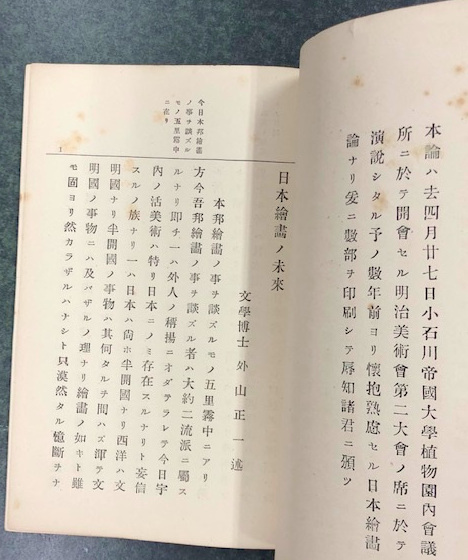 本論ハ去四月廿七日小石川帝國大學植物園內會議
所ニ於テ開會セル明治美術會第二大會ノ席ニ於テ
演說シタル予ノ數年前ヨリ懷抱熟慮セル日本繪畫
論ナリ爰ニ數部ヲ印刷シテ辱知諸君ニ頒ツ
日本繪畫ノ未來
文學博士 外山正一 述
本邦繪畫ノ事ヲ談ズルモノ五里霧中ニアリ
方今吾邦繪畫ノ事ヲ談ズル者ハ大約二流派ニ屬ス
ルナリ即チ一ハ外人ノ稱揚ニオダテラレテ今日宇
內ノ活美術ハ特リ日本ニノミ存在スルナリト妄信
スルノ族ナリ一ハ日本ハ尙ホ半開國ナリ西洋ハ文
明國ナリ半開國ノ事物ハ其何タルヲ問ハズ渾テ文
明國ノ事物ニハ及バザルノ理ナリ繪畫ノ如キト雖
モ固ヨリ然カラザルハナシト只漠然タル憶斷ヲナ
今日本邦繪畫
ノ事ヲ談ズル
モノ五里霧中
ニ在リ
1